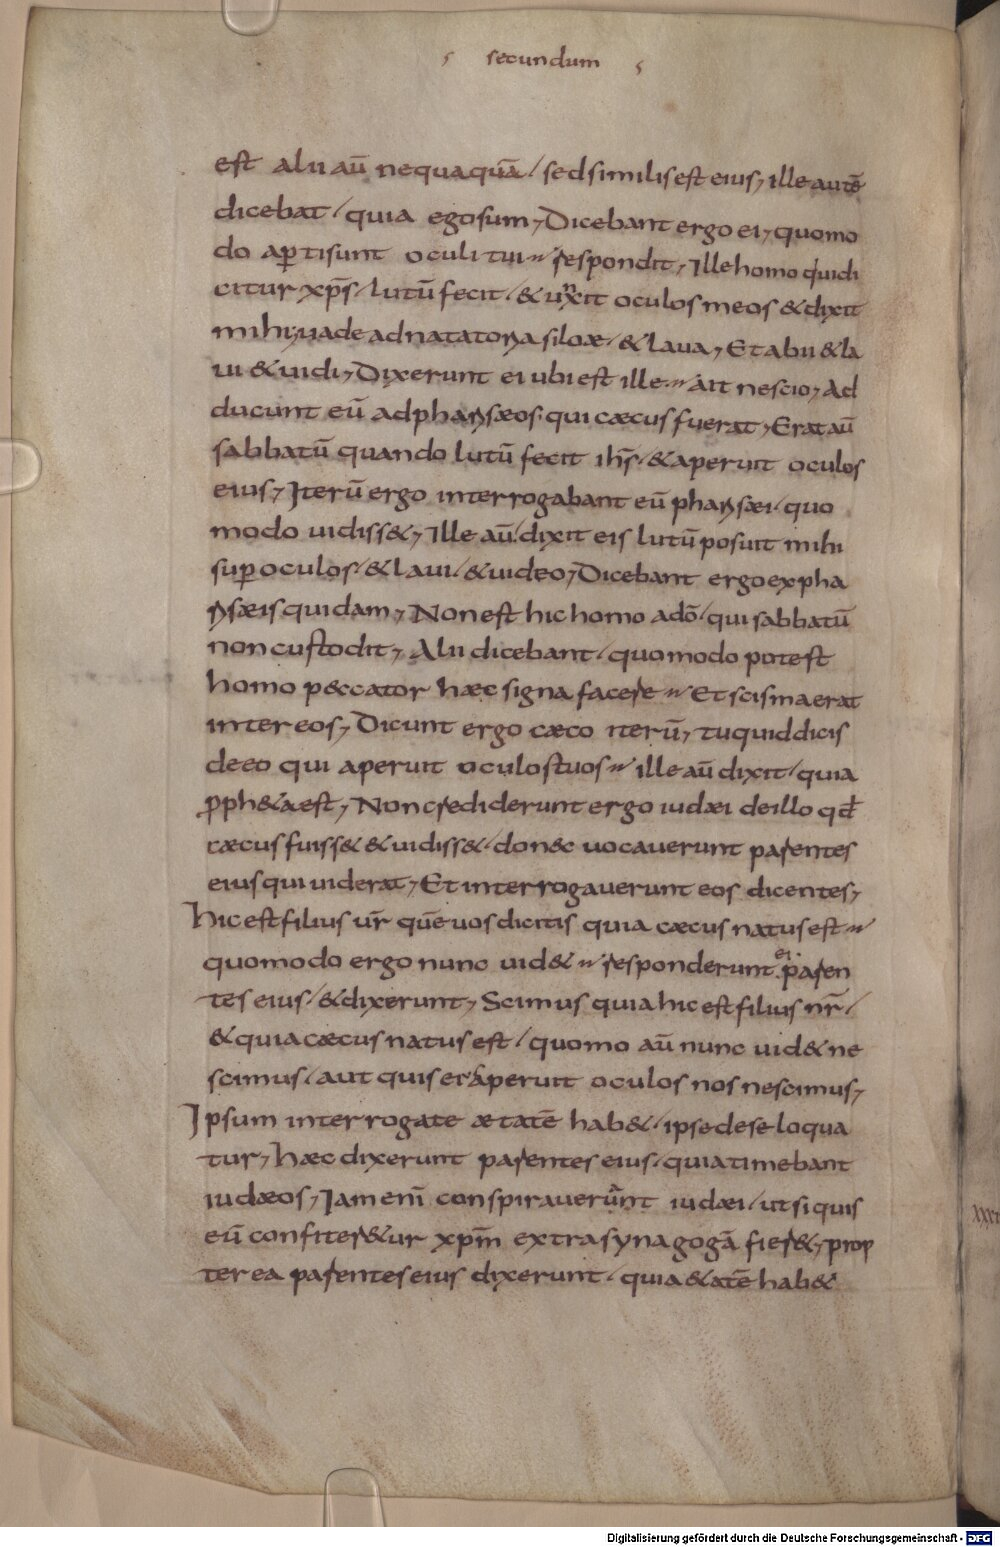 secundum
est alii aū nequaquā / sed similis est eius, ille autē
dicebat / quia ego sum, Dicebant ergo ei, quomo
do aꝑti sunt oculi tui respondit, Ille homo qui di
citur xp̄s / lutū fecit / & unxit oculos meos & dixit
mihi, uade ad natatoria siloæ / & laua, Et abii & la
ui & uidi, Dixerunt ei ubi est ille ait nescio, Ad
ducunt eū ad pharisæos qui cæcus fuerat, Erat aū
sabbatū quando lutū fecit ih̄s / & aperuit oculos
eius, Iterū ergo interrogabant eū pharisæi / quo
modo uidiss&, Ille aū dixit eis lutū posuit mihi
suꝑ oculos / & laui / & uideo, Dicebant ergo ex pha
risæis quidam, Non est hic homo a dō / qui sabbatū
non custodit, Alii dicebant / quomodo potest
homo p&ccator hæc signa facere Et scisma erat
inter eos, Dicunt ergo cæco iterū, tu quid dicis
de eo qui aperuit oculos tuos ille aū dixit / quia
ꝓph&a est, Non crediderunt ergo iudæi de illo qd̄
cæcus fuiss& & uidiss& / don&c uocauerunt parentes
eius qui uiderat, Et interrogauerunt eos dicentes,
Hic est filius ur̄ quē uos dicitis quia cæcus natus est
quomodo ergo nunc uid& responderunt ei paren
tes eius / & dixerunt, Scimus quia hic est filius nr̄ /
& quia cæcus natus est / quomo aū nunc uid& ne
scimus / aut quis ei aperuit oculos nos nescimus,
Ipsum interrogate ætatē hab& / ipse de se loqua
tur, Hæc dixerunt parentes eius / quia timebant
iudæos, Iam enī conspirauerunt iudæi / ut si quis
eū confiter&ur xp̄m extra synagogā fier&, prop
terea parentes eius dixerunt / quia &atē hab&
Digitalisierung gefördert durch die Deutsche Forschungsgemeinschaft - DFG